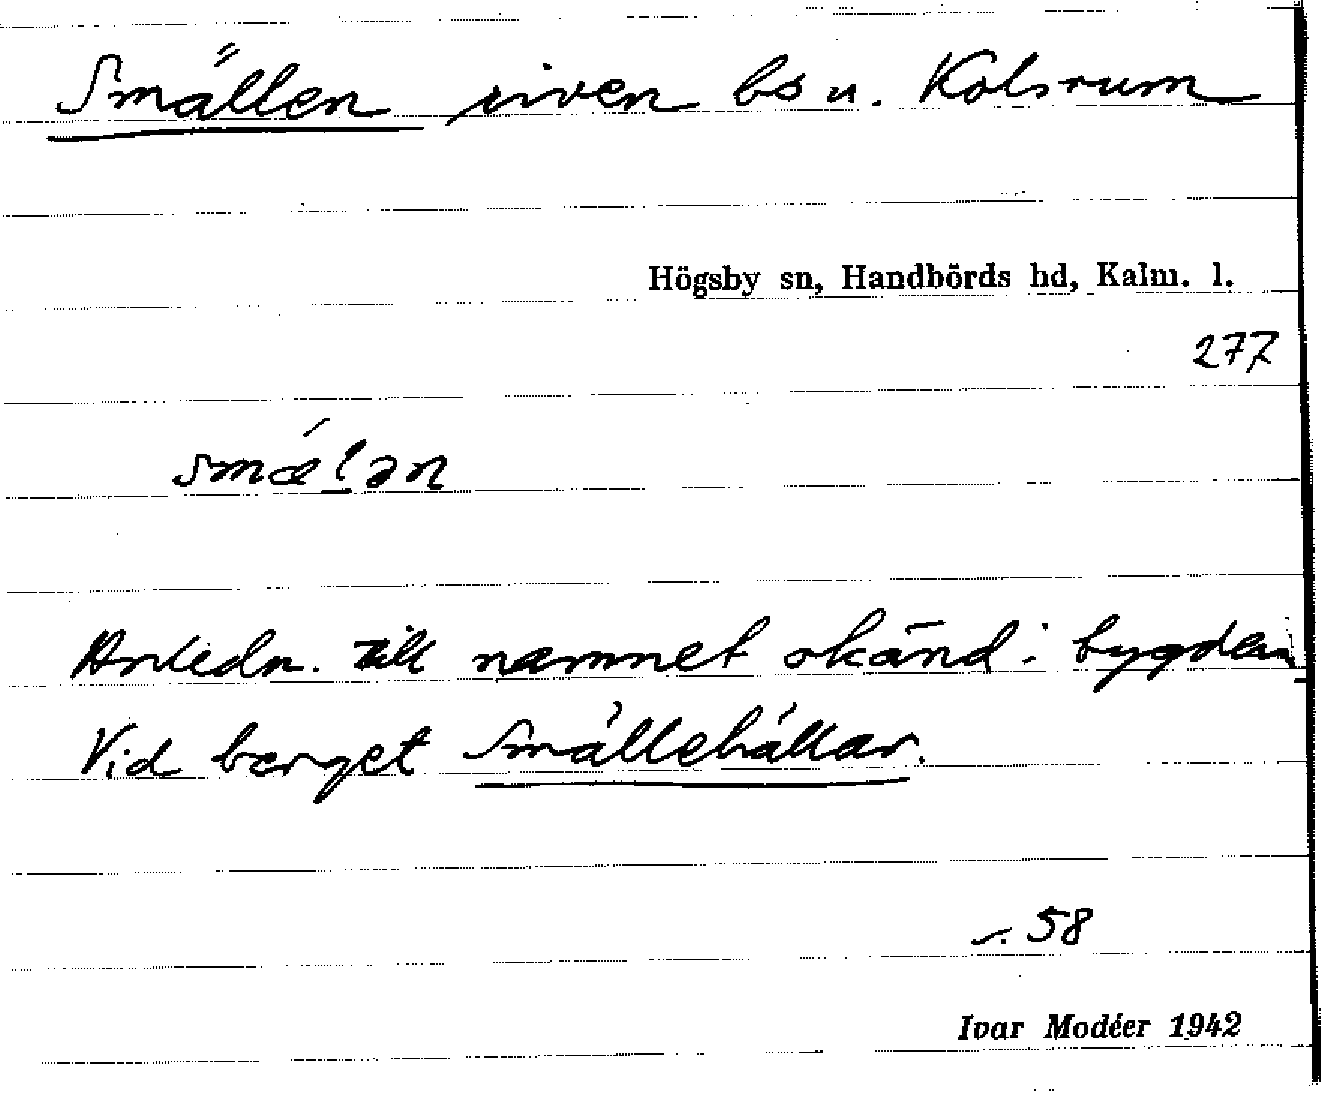 Smällen riven bs u. Kolsrum
Högsby sn, Handbörds hd, Kalm. l.
277
smǽlən
Anledn. till namnet okänd i bygden
Vid berget Smällehällar.
s. 58
Ivar Modéer 1942